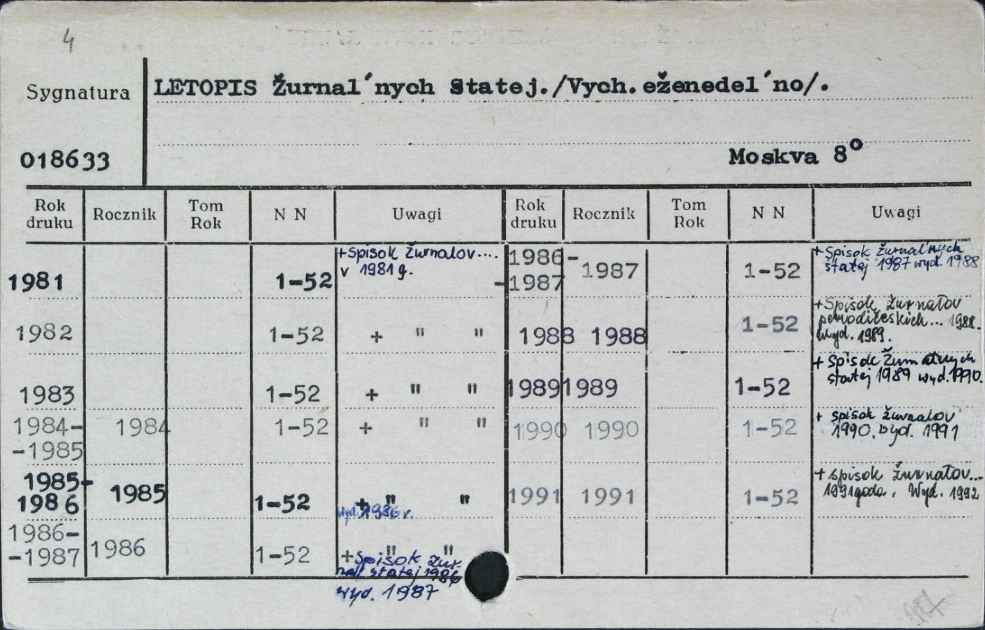 4
Sygnatura
LETOPIS Žurnal´nych Statej./Vych.eženedel´no/.
018633
Moskva 8°
Rok druku Rocznik Tom Rok N N Uwagi Rok druku Rocznik Tom Rok N N Uwagi
1981 1-52 +Spisok Žurnalov.... v 1981 g.
1982 1-52 + " "
1983 1-52 + " "
1984-
-1985 1984 1-52 + " "
1985-
1986 1985 1-52 + " "
wyd. 1986 r.
1986-
-1987 1986 1-52 + " "
Spisok Żur.
nal. statej 1986
wyd. 1987
1986-
-1987 1987 1-52 + Spisok Žurnal'nych
statej 1987 wyd. 1988
1988 1988 1-52 + Spisok Żurnałov
periodičeskich... 1988.
Wyd. 1989.
1989 1989 1-52 + Spisok
statej 1989 wyd. 1990.
1990 1990 1-52 + spisok žurnalov
1990. Wyd. 1991
1991 1991 1-52 + spisok żurnałov...
1991goda. Wyd. 1992